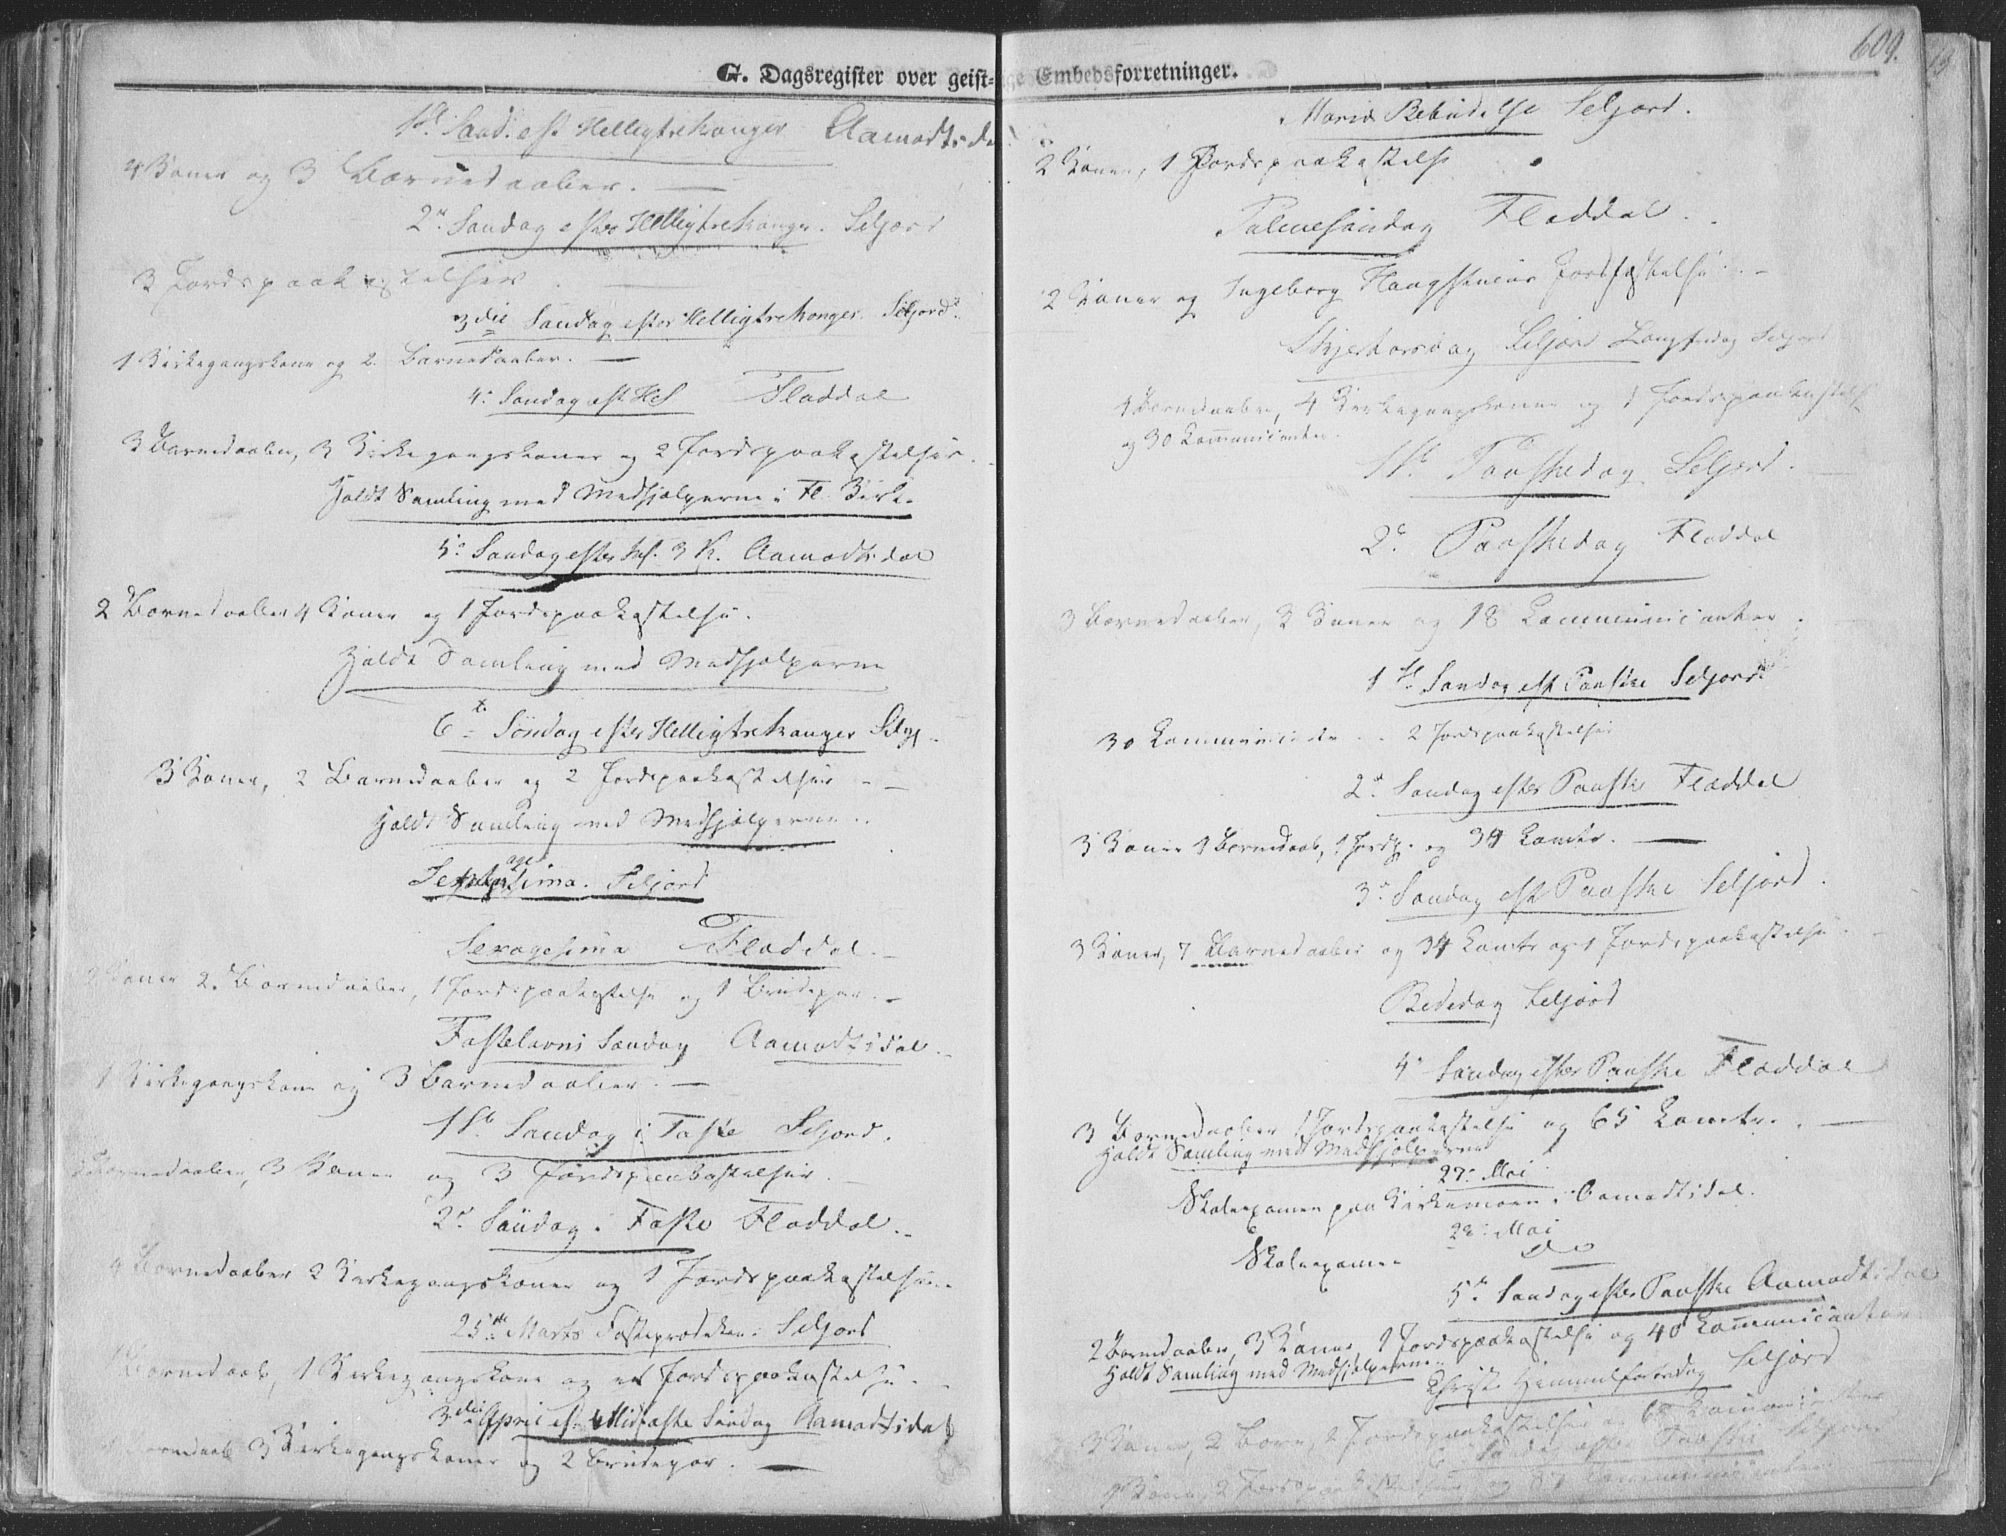 G. Dagsregister over geist=
1ste Sønd. eft Helligtrekonger Aamodtsdal
4 Koner og 3 Barnedaaber.
2n Søndag efter Helligtrekonger. Seljord
3 Jordspaakastelser
3die Søndag efter Helligtrekonger. Seljord.
1 Kirkegangskone og 2 Barnedaaber.
4. Søndag eft. Hel Fladdal
3 Barnedaaber, 3 Kirkegangskoner og 2 Jordspaakastelser.
Holdt Samling med Medhjælperne i Fl. Kirke
5te Søndag efter Hel. 3 K. Aamodtsdal
2 Barnedaaber 4 Koner og 1 Jordspaakastelse.
Holdt Samling med Medhjælperne
6te Søndag efter Helligtrekonger Selj.
3 Koner, 2 Barnedaaber og 2 Jordspaakastelser
Holdt Samling med Medhjælperne
Septuagesima. Seljord
Sexagesima Fladdal.
Koner 2 Barnedaaber, 1 Jordspaakastelse og 1 Brudepar.
Fastelavns Søndag Aamodtsdal.
1 Kirkegangskone og 3 Barnedaaber.
1ste Søndag i Faste Seljord.
Barnedaaber, 3 Koner og 3 Jordspaakastelser.
2n Søndag i Faste Fladdal.
4 Barnedaaber 2 Kirkegangskoner og 1 Jordspaakastelse.
25de Marts Fasteprædiken i Seljord
Barnedaab, 1 Kirkegangskone og en Jordspaakastelse.
3die April el. Midfaste Søndag Aamodtsdal
Barnedaab 3 Kirkegangskoner og 2 Brudepar.
609.
lige Embedsforretninger.
Mariæ Bebudelse Seljord.
2 Koner, 1 Jordspaakastelse
Palmesøndag Fladdal.
2 Koner og Ingeborg Haugsteins Jordfæstelse
Skjertorsdag Seljord Langfredag Seljord
1 Barnedaaber, 4 Kirkegangskoner og 1 Jordspaakastelse
og 30 Communicanter.
1ste Paaskedag Seljord.
2n Paaskedag Fladdal
3 Barnedaaber, 2 Koner og 18 Communicanter.
1ste Søndag eft Paaske Seljord
30 Communicanter 2 Jordspaakastelser
2n Søndag efter Paaske Fladdal
3 Koner 1 Barnedaab, 1 Jordp. og 34 Comtr.
3e Søndag eft Paaske Seljord.
3 Koner, 7 Barnedaaber og 34 Comtr og 1 Jordspaakastelse.
Bededag Seljord
4e Søndag efter Paaske Fladdal
3 Barnedaaber 1 Jordspaakastelse og 65 Comtr.
Holdt Samling med Medhjælperne
27. Mai
Skoleexamen paa Kirkemoen i Aamodtsdal.
28. Mai
Skoleexamen Do
5te Søndag efter Paaske Aamodtsdal
2 Barnedaaber, 3 Koner, 1 Jordspaakastelse og 40 Communicanter
Holdt Samling med Medhjælperne.
Christi Himmelfartsdag Seljord
3 Koner, 2 Børn, 2 Jordspaakastelser Communicanter
6 Søndag efter Paaske Seljord
Koner, 2 Jordspaakastelser og Communicanter